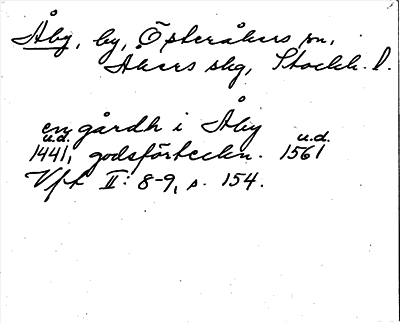 Åby, by, Österåkers sn,
Åkers skg, Stockh. l.
en gårdh i Åby
u.d. u.d.
1441, godsförteckn. 1561
Vft II: 8-9, s. 154.